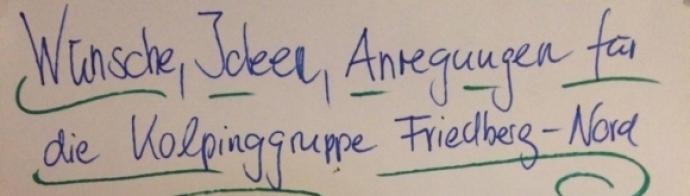 Wünsche, Ideen, Anregungen für
die Kolpinggruppe Friedberg-Nord